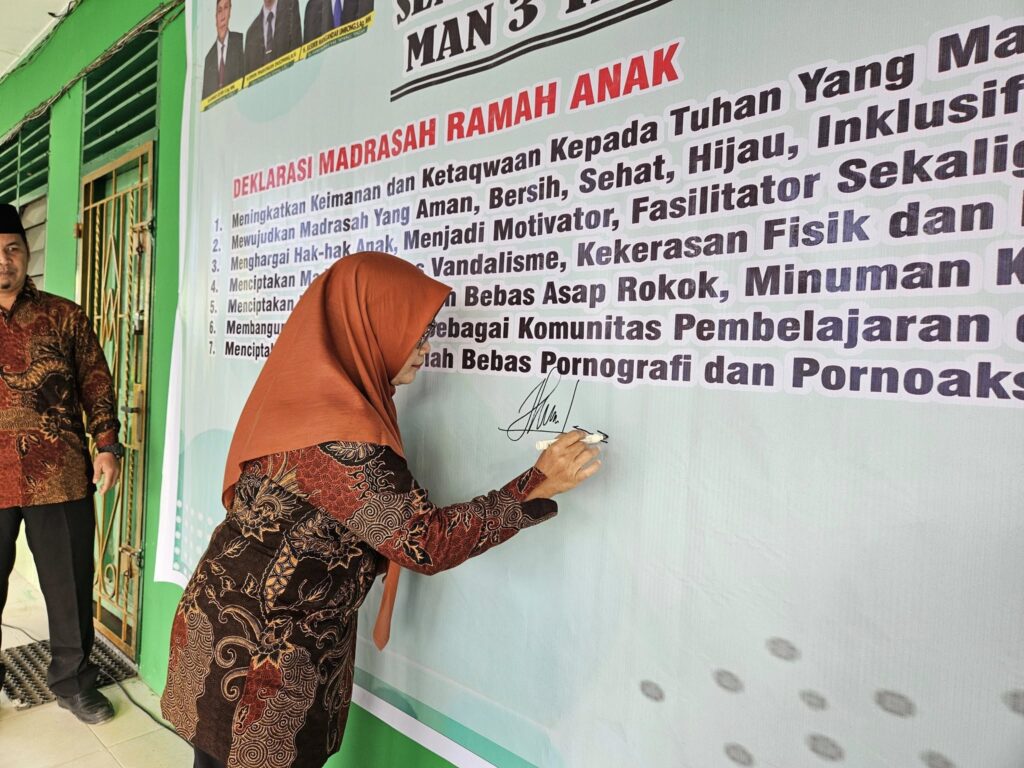 MAN 3
DEKLARASI MADRASAH RAMAH ANAK
1. Meningkatkan Keimanan dan Ketaqwaan Kepada Tuhan Yang Ma
2. Mewujudkan Madrasah Yang Aman, Bersih, Sehat, Hijau, Inklusif
3. Menghargai Hak-hak Anak, Menjadi Motivator, Fasilitator Sekalig
4. Menciptakan Ma s Vandalisme, Kekerasan Fisik dan
5. Menciptakan h Bebas Asap Rokok, Minuman K
6. Membangun sebagai Komunitas Pembelajaran d
7. Menciptak ah Bebas Pornografi dan Pornoaks